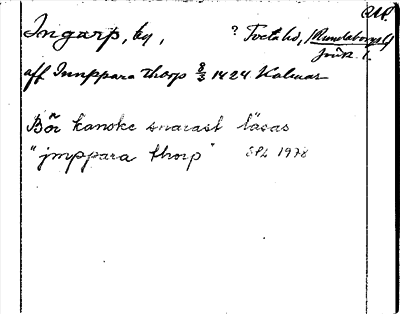 Ingarp, by, ? Tveta hd, (Rundeborgs l)
Jönk. l.
aff Innppara thorp 8/3 1424 Kalmar
Bör kanske snarast läsas
"jmppara thorp" SPL 1978